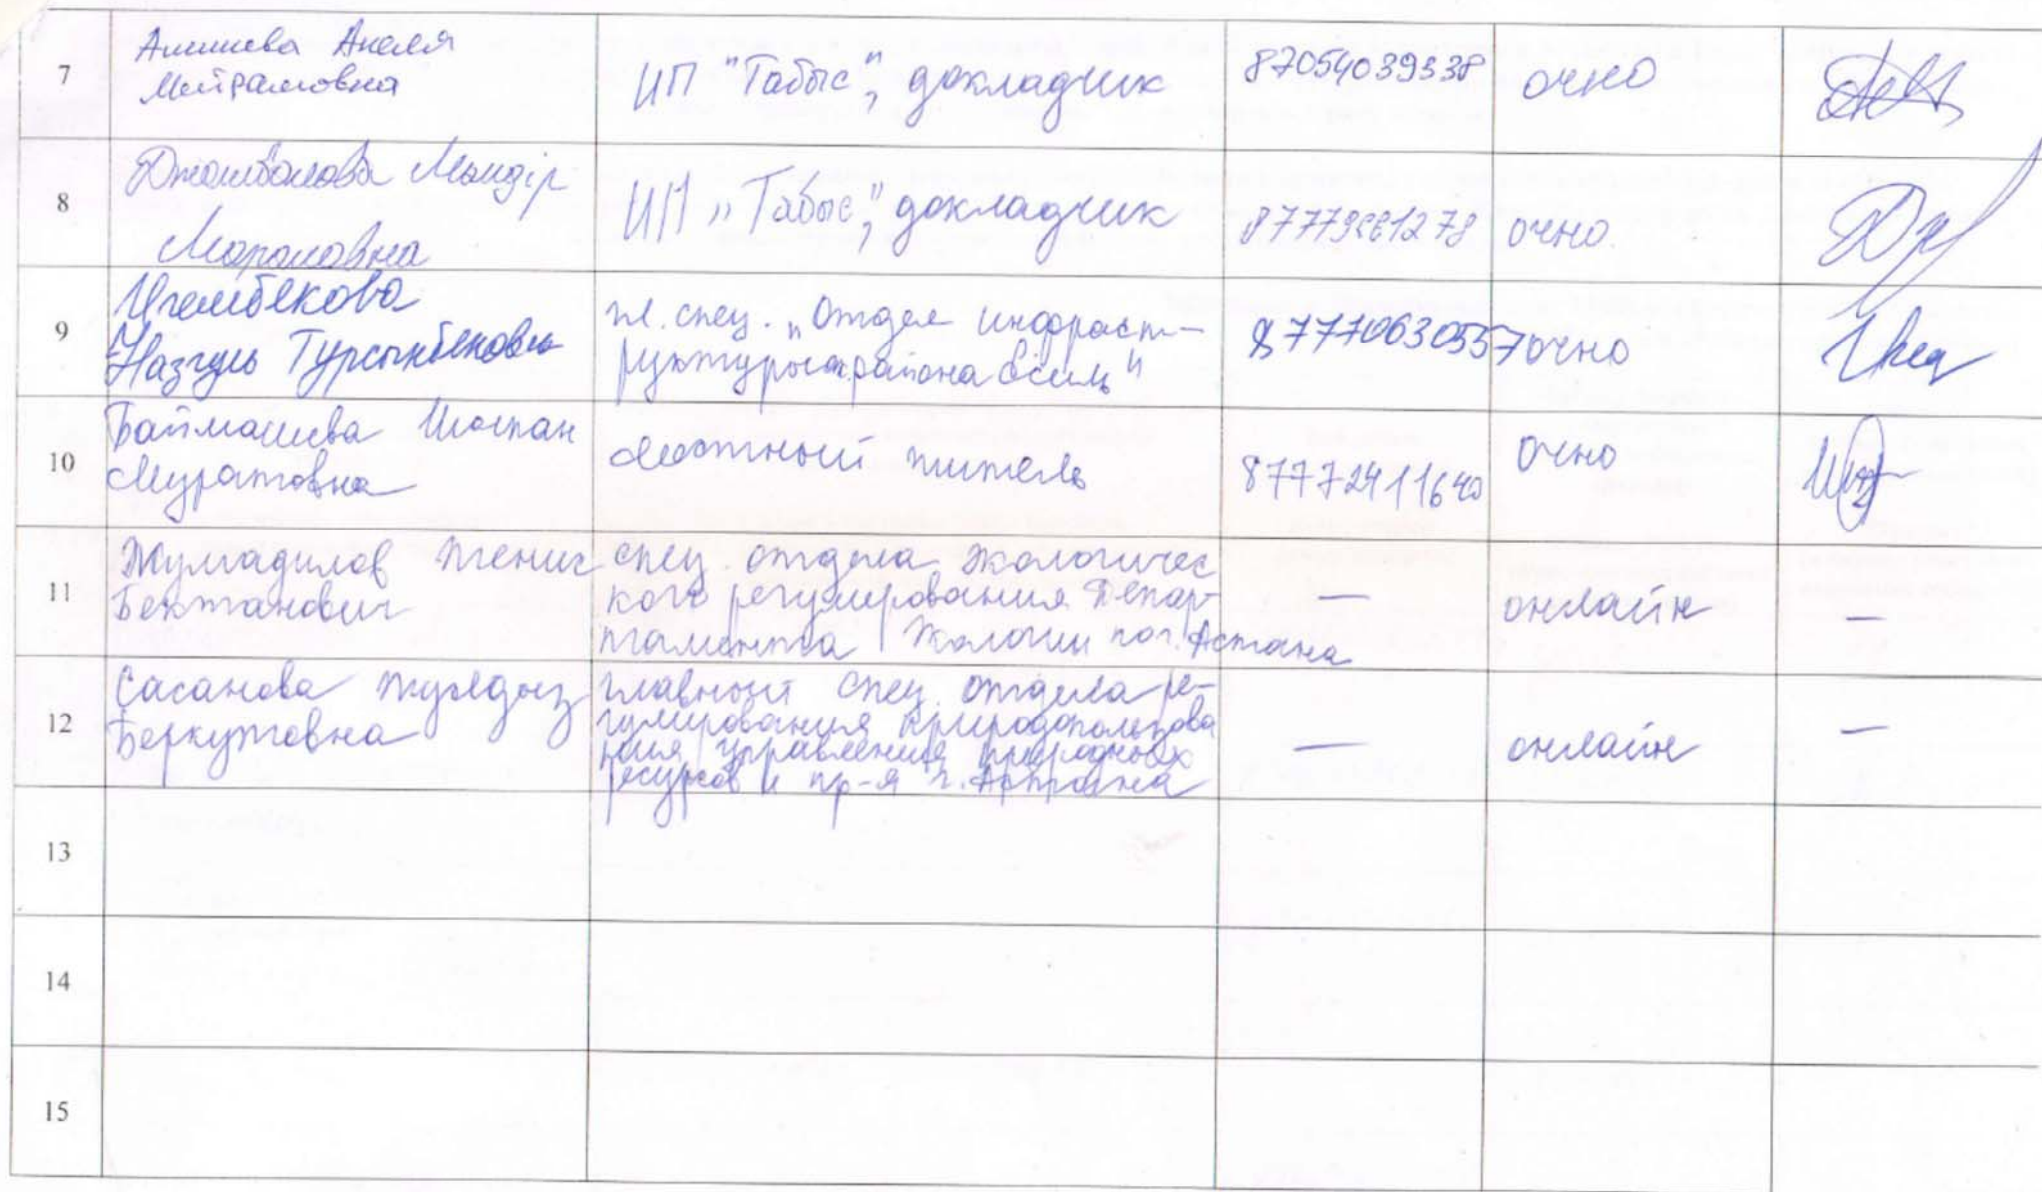 7
Анеля
Мейрамовна
ИП "Табыс", докладчик
87054039338
очно
8
Моldір
ИП „Табыс", докладчик
очно
9
Игембекова
Назгуль Турсынбековна
гл. спец. „Отдел инфраст-
руктуры района Есиль"
87770630557
очно
10
Баймашева Шолпан
Муратовна
местный житель
87772411640
очно
11
Жумадилов Женис
Бектанович
спец. отдела экологичес
кого регулирования Депар-
тамента Экологии по г. Астана
—
онлайн
—
12
Сасанова Жулдыз
Беркутовна
главный спец. отдела ре-
гулирования природопользова
ния управления природных
ресурсов и пр-я г.
—
онлайн
—
13
14
15